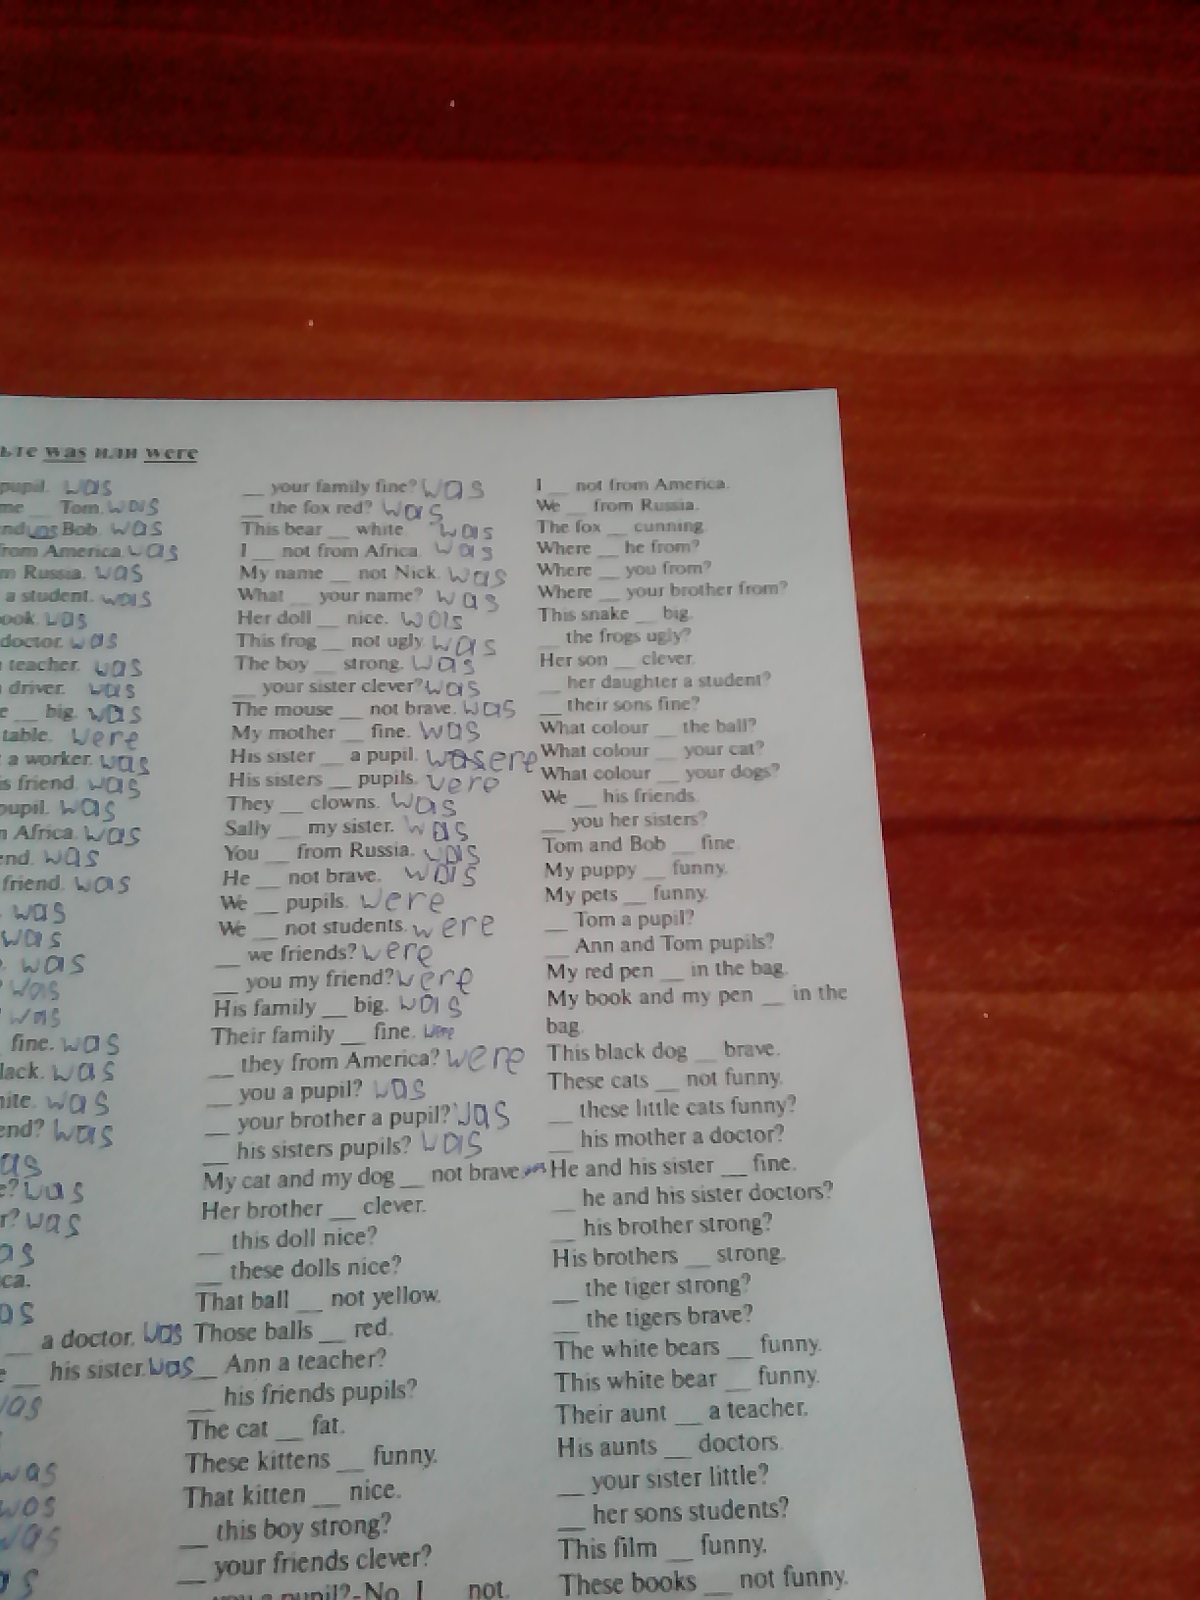 ьте was или were
pupil. was
me __ Tom. was
nd was Bob. was
from America. was
m Russia. was
a student. was
ook. was
doctor. was
teacher. was
driver. was
e __ big. was
table. were
a worker. was
is friend. was
pupil. was
n Africa. was
end. was
friend. was
was
was
was
was
was
fine. was
lack. was
hite. was
end? was
as
e? was
r? was
as
ca.
as
__ a doctor. was
e __ his sister. was
was
was
was
was
as
__ your family fine? was
__ the fox red? was
This bear __ white was
I __ not from Africa. was
My name __ not Nick. was
What __ your name? was
Her doll __ nice. was
This frog __ not ugly. was
The boy __ strong. was
__ your sister clever? was
The mouse __ not brave. was
My mother __ fine. was
His sister __ a pupil.
His sisters __ pupils. were
They __ clowns. was
Sally __ my sister. was
You __ from Russia. was
He __ not brave. was
We __ pupils. were
We __ not students. were
__ we friends? were
__ you my friend? were
His family __ big. was
Their family __ fine. were
__ they from America? were
__ you a pupil? was
__ your brother a pupil? was
__ his sisters pupils? was
My cat and my dog __ not brave. was
Her brother __ clever.
__ this doll nice?
__ these dolls nice?
That ball __ not yellow.
Those balls __ red.
__ Ann a teacher?
__ his friends pupils?
The cat __ fat.
These kittens __ funny.
That kitten __ nice.
__ this boy strong?
__ your friends clever?
you a pupil?-No, I __ not.
I __ not from America.
We __ from Russia.
The fox __ cunning.
Where __ he from?
Where __ you from?
Where __ your brother from?
This snake __ big.
__ the frogs ugly?
Her son __ clever.
__ her daughter a student?
__ their sons fine?
What colour __ the ball?
What colour __ your cat?
What colour __ your dogs?
We __ his friends.
__ you her sisters?
Tom and Bob __ fine.
My puppy __ funny.
My pets __ funny.
__ Tom a pupil?
__ Ann and Tom pupils?
My red pen __ in the bag.
My book and my pen __ in the
bag.
This black dog __ brave.
These cats __ not funny.
__ these little cats funny?
__ his mother a doctor?
He and his sister __ fine.
__ he and his sister doctors?
__ his brother strong?
His brothers __ strong.
__ the tiger strong?
__ the tigers brave?
The white bears __ funny.
This white bear __ funny.
Their aunt __ a teacher.
His aunts __ doctors.
__ your sister little?
__ her sons students?
This film __ funny.
These books __ not funny.